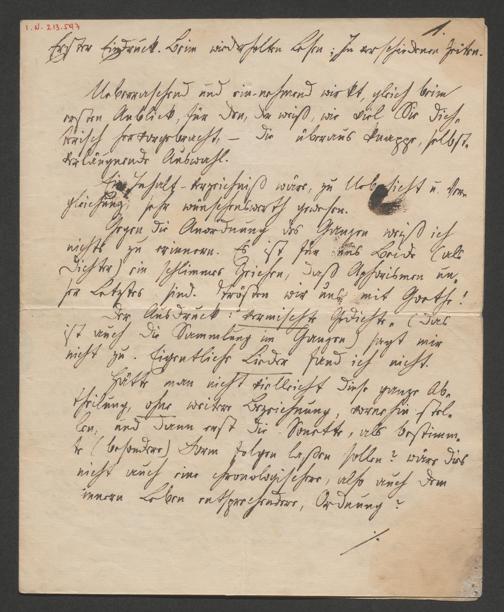 I.N. 213.597
1.
Erster Eindruck. Beim wiederholten Lesen; zu verschiedenen Zeiten.
Ueberraschend und ein-nehmend wirkt, gleich beim
ersten Anblick, für den, der weiß, wie viel Sie dich-
terisch hervorgebracht, – die überaus knappe, selbst-
verläugnende Auswahl.
Ein Inhalt-Verzeichniß wäre, zu Uebersicht u. Ver-
gleichung, sehr wünschenswerth gewesen.
Gegen die Anordnung des Ganzen weiß ich
nichts zu erinnern. Es ist für uns Beide (als
Dichter) ein schlimmes Zeichen, daß Aphorismen un-
ser Letztes sind. Trösten wir uns mit Goethe!
Der Ausdruck: vermischte Gedichte, (das
ist auch die Sammlung im Ganzen) sagt mir
nicht zu. Eigentliche Lieder fand ich nicht.
Hätte man nicht vielleicht diese ganze Ab-
theilung, ohne weitere Bezeichnung, vornehin stel-
len, und dann erst die Sonette, als bestimm-
te (besondere) Form folgen laßen sollen? wäre dies
nicht auch eine chronologischere, also auch dem
innern Leben entsprechendere, Ordnung?